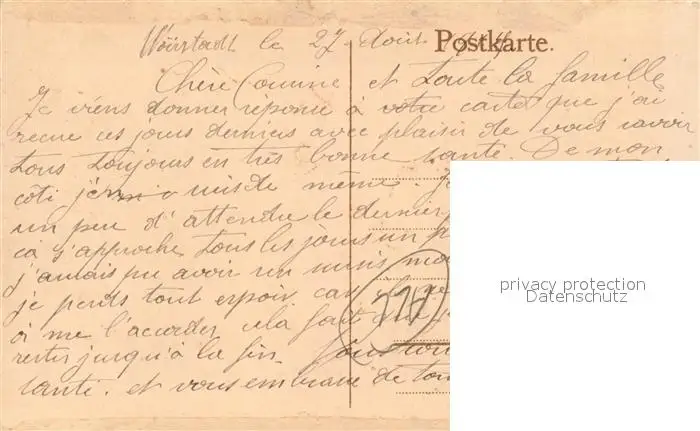 Wörrstadt le 27 Août
Postkarte.
Chère Cousine et toute la famille
Je viens donner réponse à votre carte que j'ai
recue ces jours derniers avec plaisir de vous savoir
tous toujours en très bonne santé. De mon
coté j'en suis de même. J
un peu d'attendre le dernier
ca s'approche tous les jours un p
j'aurais pu avoir un mois
je perds tout espoir car
à me l'accorder cela fait que
rester jusqu'à la fin
santé. et vous embrasse de tou
privacy protection
Datenschutz